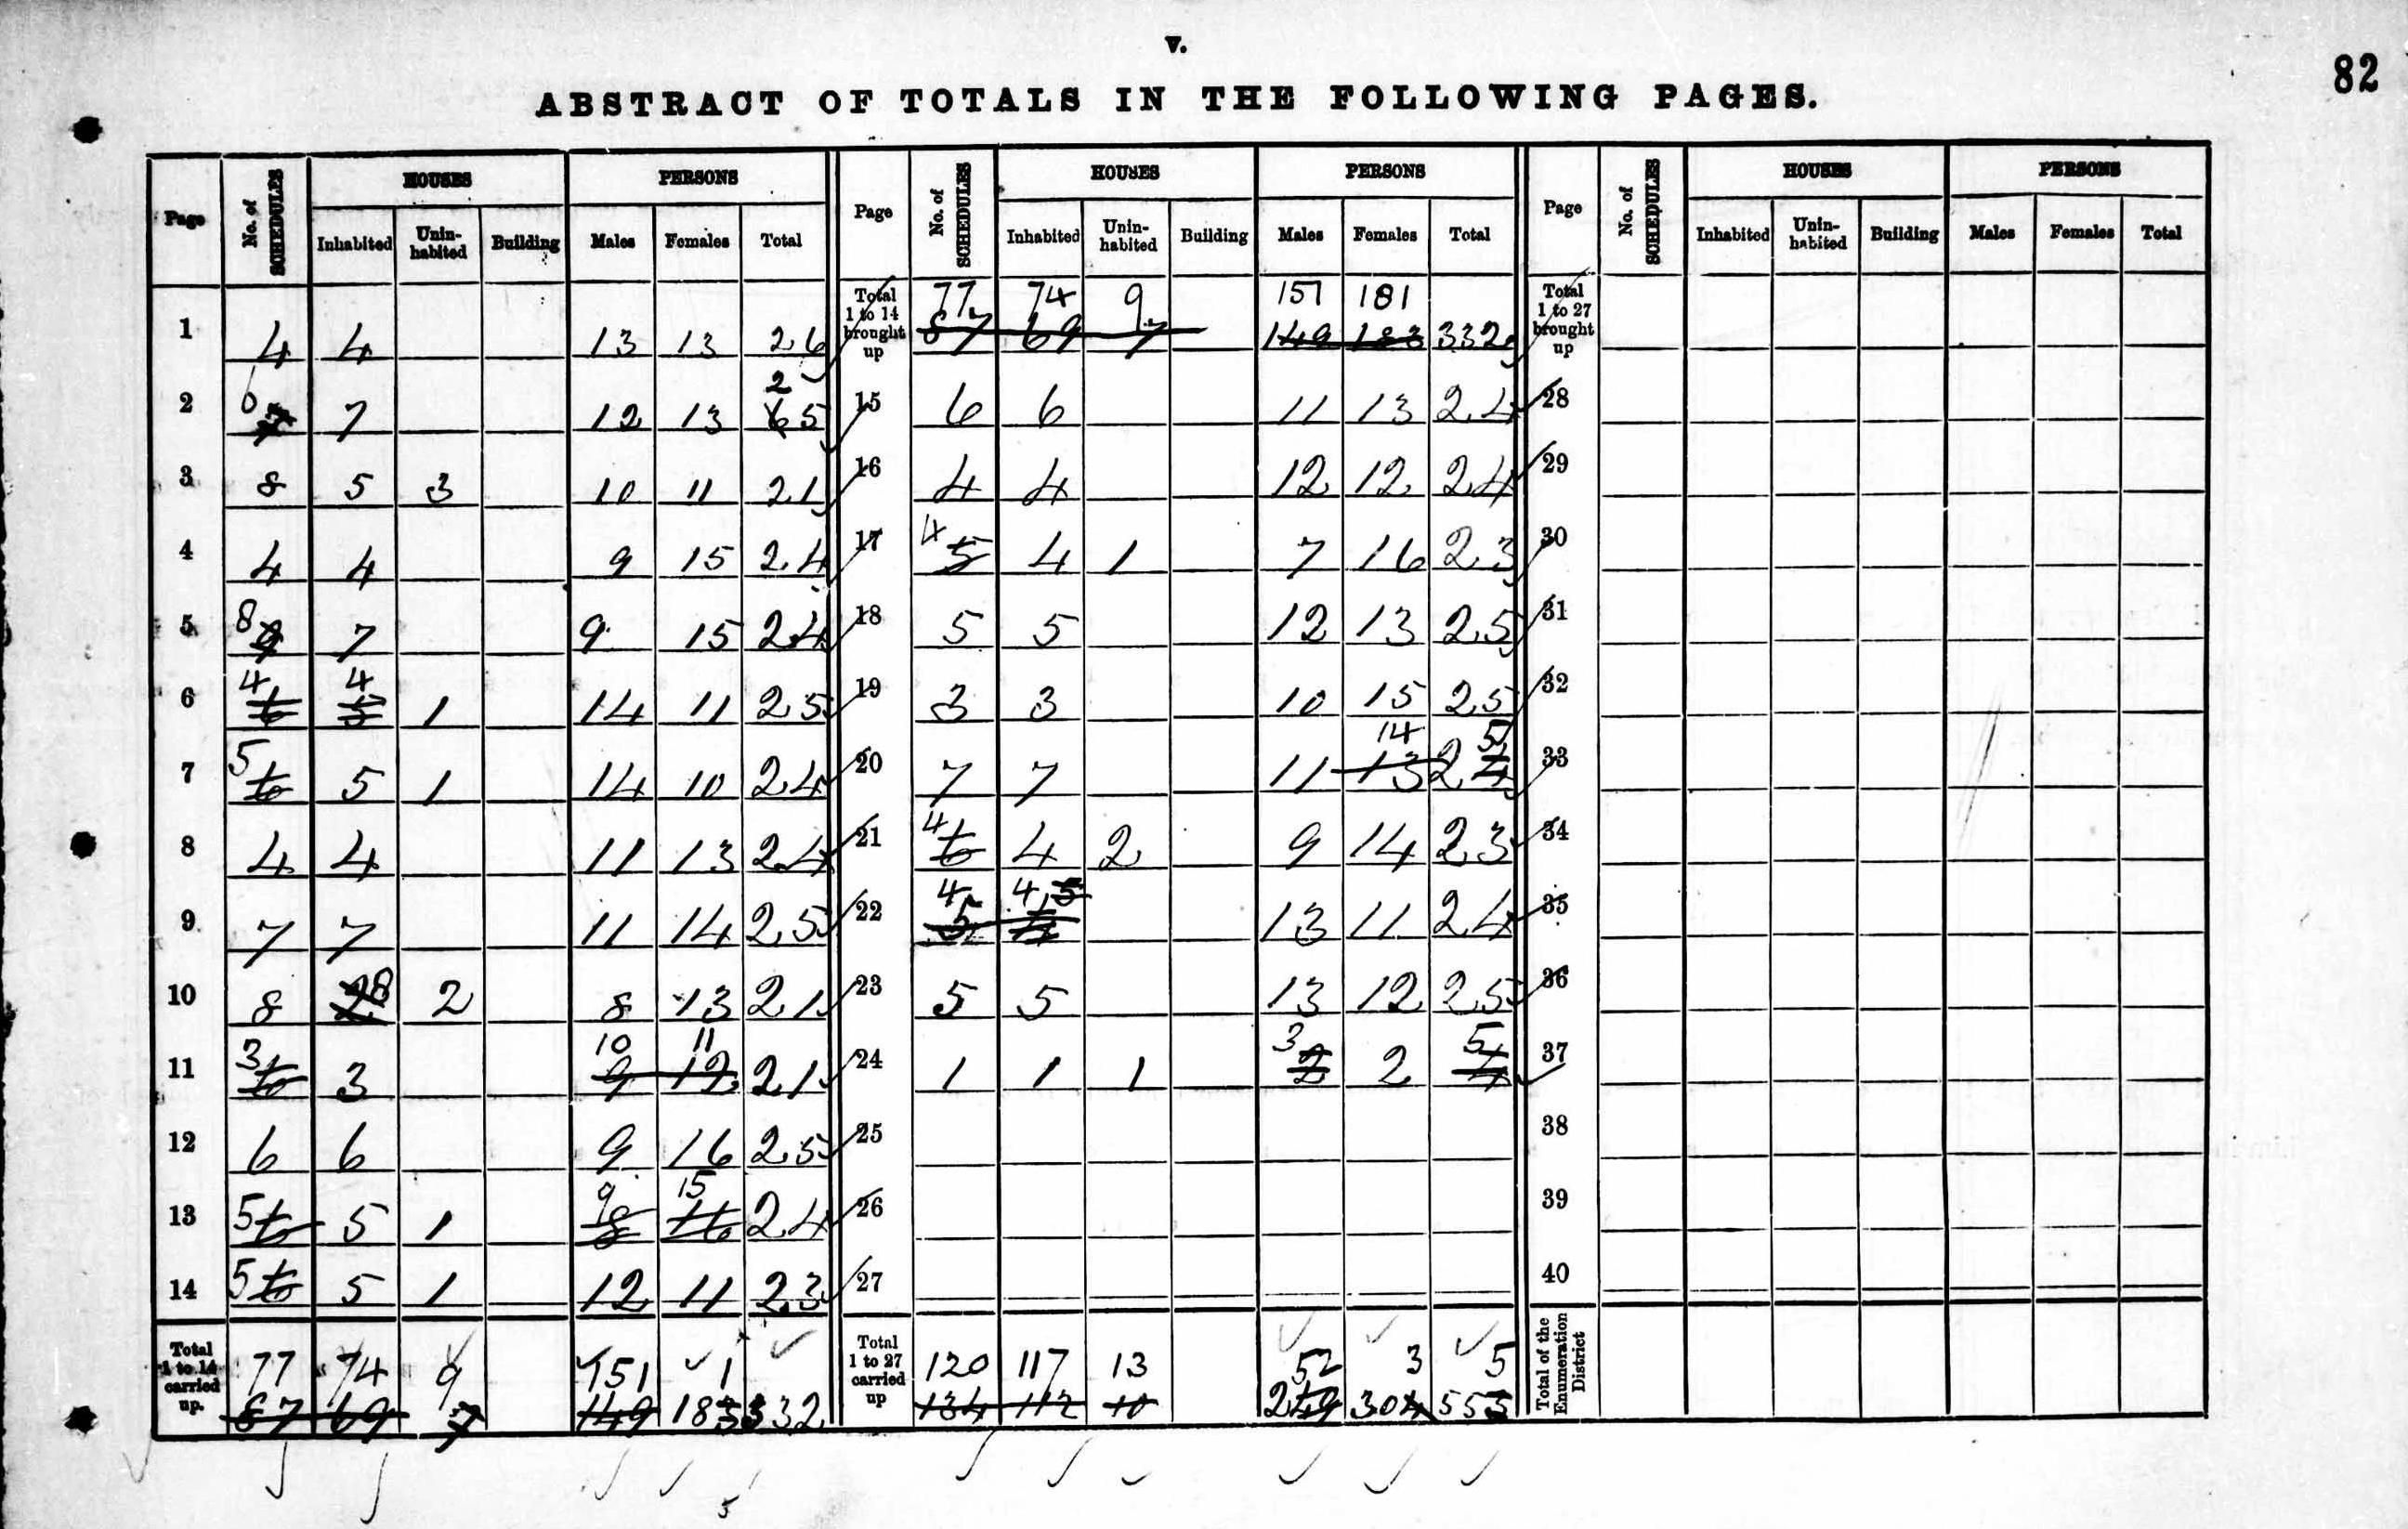 v.
82
ABSTRACT OF TOTALS IN THE FOLLOWING PAGES.
Page No. of SCHEDULES HOUSES PERSONS Page No. of SCHEDULES HOUSES PERSONS Page No. of SCHEDULES HOUSES PERSONS
Inhabited Unin-habited Building Males Females Total Inhabited Unin-habited Building Males Females Total Inhabited Unin-habited Building Males Females Total
77 74 9 151 181
1 4 4 13 13 26 Total 1 to 14 brought up 87 69 7 149 183 332 Total 1 to 27 brought up
2
2 6 7 7 12 13 65 15 6 6 11 13 24 28
3 8 5 3 10 11 21 16 4 4 12 12 24 29
4 4 4 9 15 24 17 4 5 4 1 7 16 23 30
5 8 9 7 9 15 24 18 5 5 12 13 25 31
4 4
6 6 5 1 14 11 25 19 3 3 10 15 25 32
14 5
7 5 6 5 1 14 10 24 20 7 7 11 13 24 33
8 4 4 11 13 24 21 4 6 4 2 9 14 23 34
4 4 5
9 7 7 11 14 25 22 5 13 11 24 35
10 8 8 2 8 13 21 23 5 5 13 12 25 36
10 11 3 5
11 3 6 3 9 12 21 24 1 1 1 2 2 4 37
12 6 6 9 16 25 25 38
9 15
13 5 6 5 1 8 16 24 26 39
14 5 6 5 1 12 11 23 27 40
77 74 9 151 1 120 117 13 52 3 5
Total 1 to 14 carried up. 87 69 7 149 183 332 Total 1 to 27 carried up 134 112 10 249 304 553 Total of the Enumeration District
5